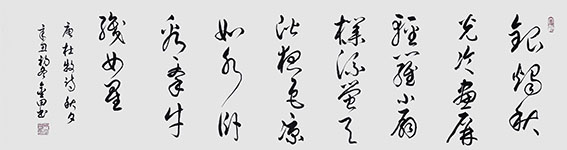 銀燭秋
光冷畫屏
輕羅小扇
撲流螢天
階夜色涼
如水卧
看牽牛
織女星
唐杜牧詩秋夕
辛丑初冬金田書